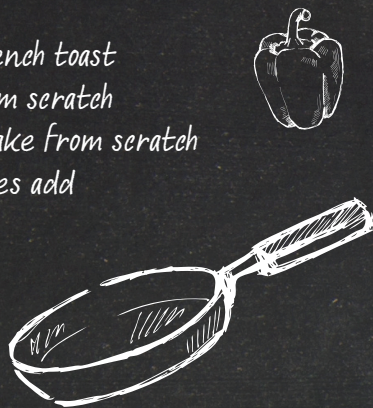 ench toast
m scratch
ake from scratch
es add